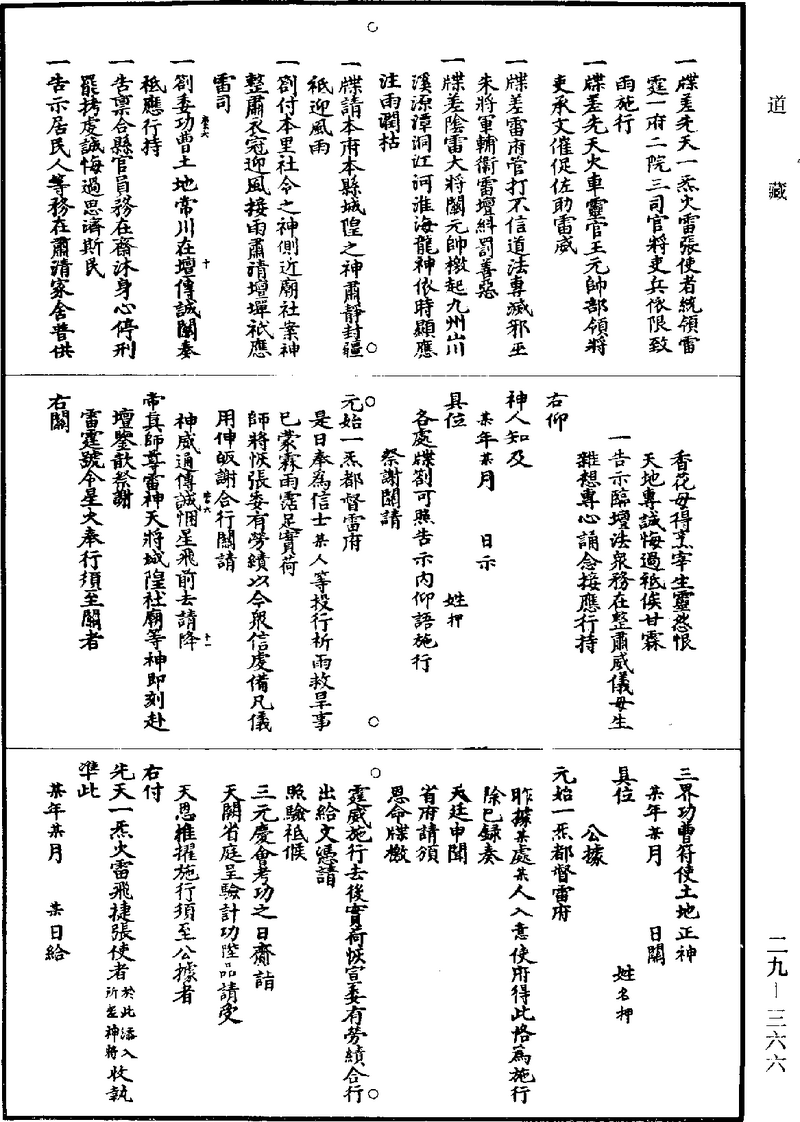 道藏
一牒差先天一炁火雷張使者統領雷
霆一府二院三司官將吏兵依限致
雨施行
一牒差先天火車靈官王元帥部領將
吏承文催促佐助雷威
一牒差雷府管打不信道法專滅邪巫
朱將軍輔衛雷壇緝罰善惡
一牒差陰雷大將閣元帥檄起九州山川
溪源潭洞江河淮海龍神依時顯應
注雨潤枯
一牒請本府本縣城隍之神肅靜封疆
祗迎風雨
一劄付本里社令之神側近廟社案神
整肅衣冠迎風接雨肅清壇墠祗應
雷司
一劄委功曹土地常川在壇傳誠關奏
祗應行持
一告稟合縣官員務在齋沐身心停刑
罷拷虔誠悔過思濟斯民
一告示居民人等務在肅清家舍普供
香花毋得烹宰生靈怨恨
天地專誠悔過祗俟甘霖
一告示臨壇法眾務在整肅威儀毋生
雜想專心誦念接應行持
右仰
神人知及
某年某月 日示
具位 姓押
各處牒劄可照告示內仰語施行
祭謝關請
元始一炁都督雷府
是日奉為信士某人等投行祈雨救旱事
已蒙霖雨霑足實荷
師將恢張委有勞績以今眾信虔備凡儀
用伸皈謝合行關請
神威通傳誠悃星飛前去請降
帝真師尊雷神天將城隍社廟等神即刻赴
壇鑒歆祭謝
雷霆號令星火奉行須至關者
右關
三界功曹符使土地正神
某年某月 日關
具位 姓名押
公據
元始一炁都督雷府
昨據某處某人入意使府得此恪為施行
除已錄奏
天廷申聞
省府請頒
恩命牒檄
霆威施行去後實荷恢宣委有勞績合行
出給文憑請
照驗祗候
三元慶會考功之日齎詣
天闕省庭呈驗計功陞品請受
天恩推擢施行須至公據者
右付
先天一炁火雷飛捷張使者於此添入所差神將收執
準此
某年某月 某日給
二九—三六六